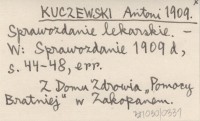 KUCZEWSKI Antoni 1909.
Sprawozdanie lekarskie. –
W: Sprawozdanie 1909 d,
s. 44-48, err.
Z Domu Zdrowia „Pomocy
Bratniej" w Zakopanem.